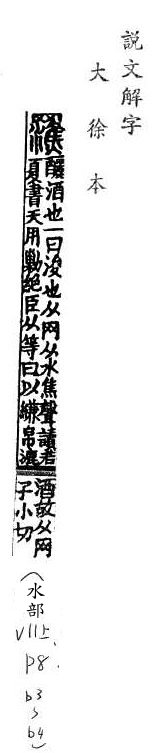 說文解字
大徐本
釃酒也一曰浚也从网从水焦聲讀若
夏書天用勦絕臣从等曰以縑帛漉
酒故从网
子小切
(水部
VII上,
p8
b3
~
b4)